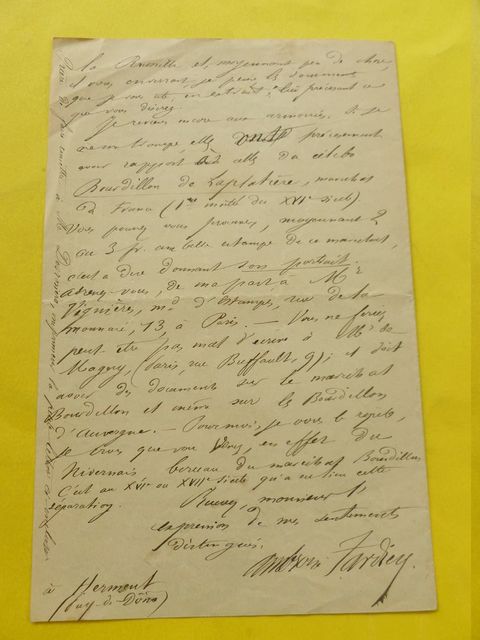 la Ramille et, moyennant peu de chose,
il vous enverrait, je pense, les documents
que je vous ai, en extrait, lui précisant ce
que vous désirez.
Je reviens encore aux armoiries. Si je
ne me trompe elles ont précisément
avec rapport à celles du célèbre
Bourdillon de Laplatière, maréchal
de France (1re moitié du XVIe siècle)
Vous pouvez vous procurer, moyennant 2
ou 3 fr. une belle estampe de ce maréchal,
c'est à dire donnant son portrait.
adressez-vous, de ma part à Mr
Vignères, md d'Estampes, rue de la
monnaie, 13, à Paris. — Vous ne feriez
peut être pas mal d'écrire à Mr de
Magny (Paris, rue Buffault, 9); il doit
avoir des documents sur le maréchal
Bourdillon et même sur les Bourdillon
d'Auvergne. — Pour moi, je vous le répète,
je crois que vous venez, en effet du
Nivernais berceau du maréchal Bourdillon
C'est au XVIe ou XVIIe siècle qu'a eu lieu cette
séparation.
Recevez, monsieur l'
expression de mes sentiments
distingués.
Ambroise Tardieu.
à Herment
(Puy-de-Dôme)